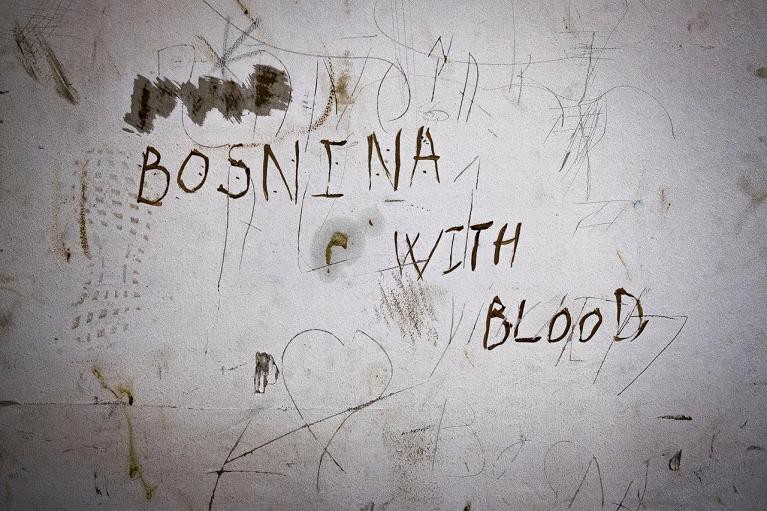 BOSNINA
WITH
BLOOD